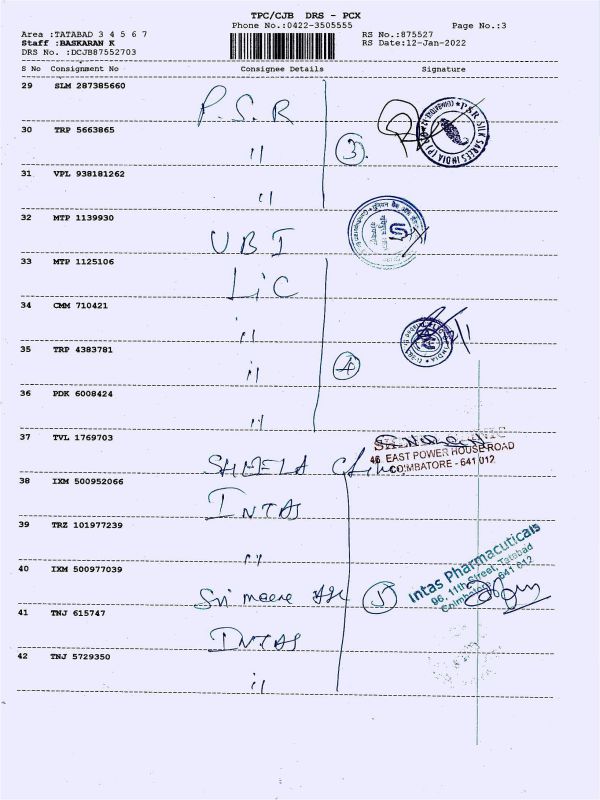 TPC/CJB DRS - PCX
Phone No.:0422-3505555
Page No.:3
Area :TATABAD 3 4 5 6 7
Staff :BASKARAN K
DRS No. :DCJB87552703
RS No.:875527
RS Date:12-Jan-2022
S No Consignment No Consignee Details Signature
29 SLM 287385660
P.S.R
30 TRP 5663865
11
3
P.S.R SILK SAREES INDIA (P)
31 VPL 938181262
11
32 MTP 1139930
UBI
33 MTP 1125106
LiC
34 CMM 710421
11
35 TRP 4383781
11
4
36 PDK 6008424
11
37 TVL 1769703
SHEELA
46 EAST POWER HOUSE ROAD
COIMBATORE - 641 012
38 IXM 500952066
INTAS
39 TRZ 101977239
11
40 IXM 500977039
Sri meera
5
Intas Pharmacuticals
96, 11th Street, Tatabad
Coimbatore - 641 012
41 TNJ 615747
INTAS
42 TNJ 5729350
11